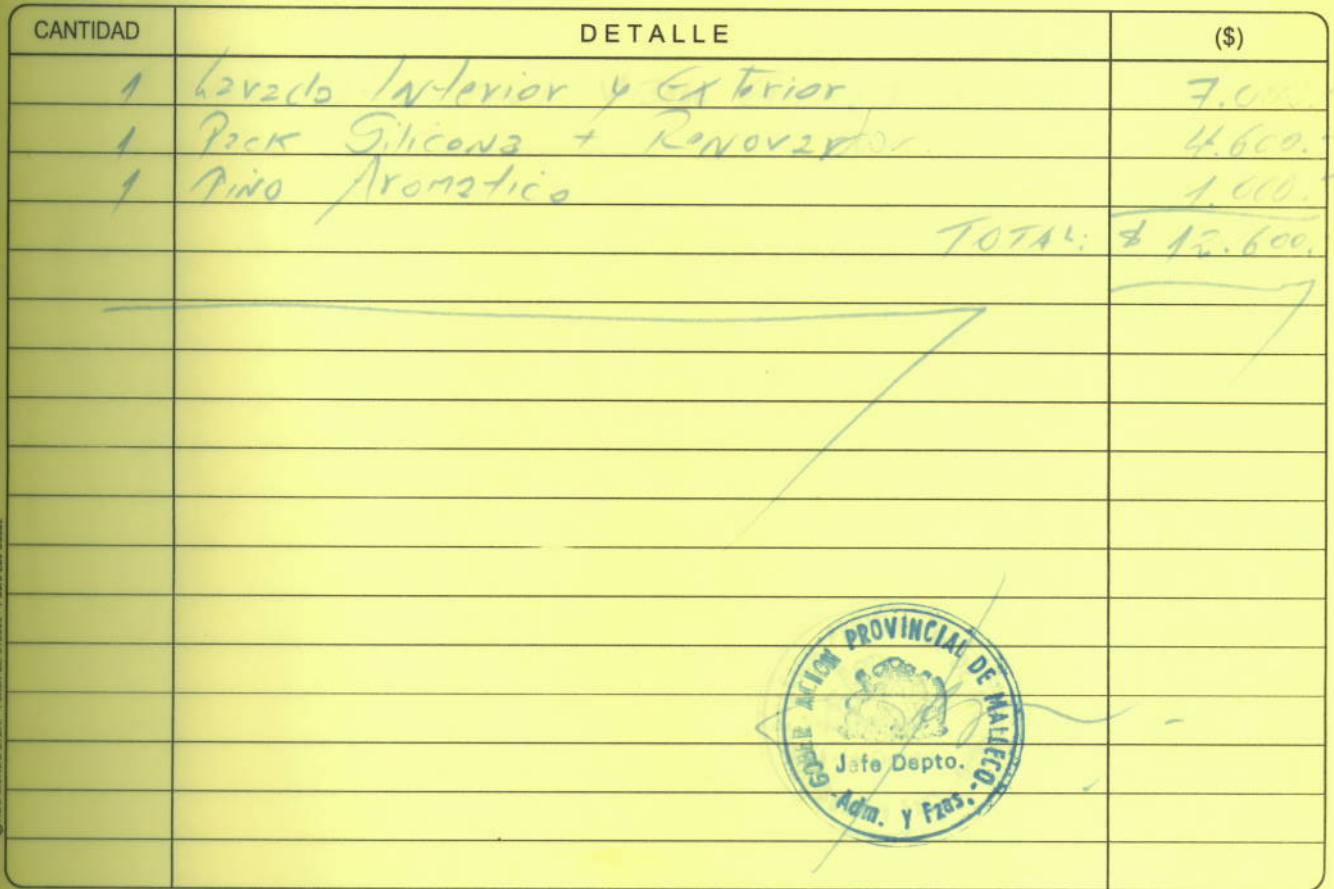 CANTIDAD DETALLE ($)
1 Lavado Interior y Exterior 7.000.
1 Pack Silicona + Renovador. 4.600.-
1 Pino Aromatico 1.000.-
TOTAL: $ 12.600.
PROVINCIAL DE MALLECO
Jefe Depto.
Adm. y Fzas.